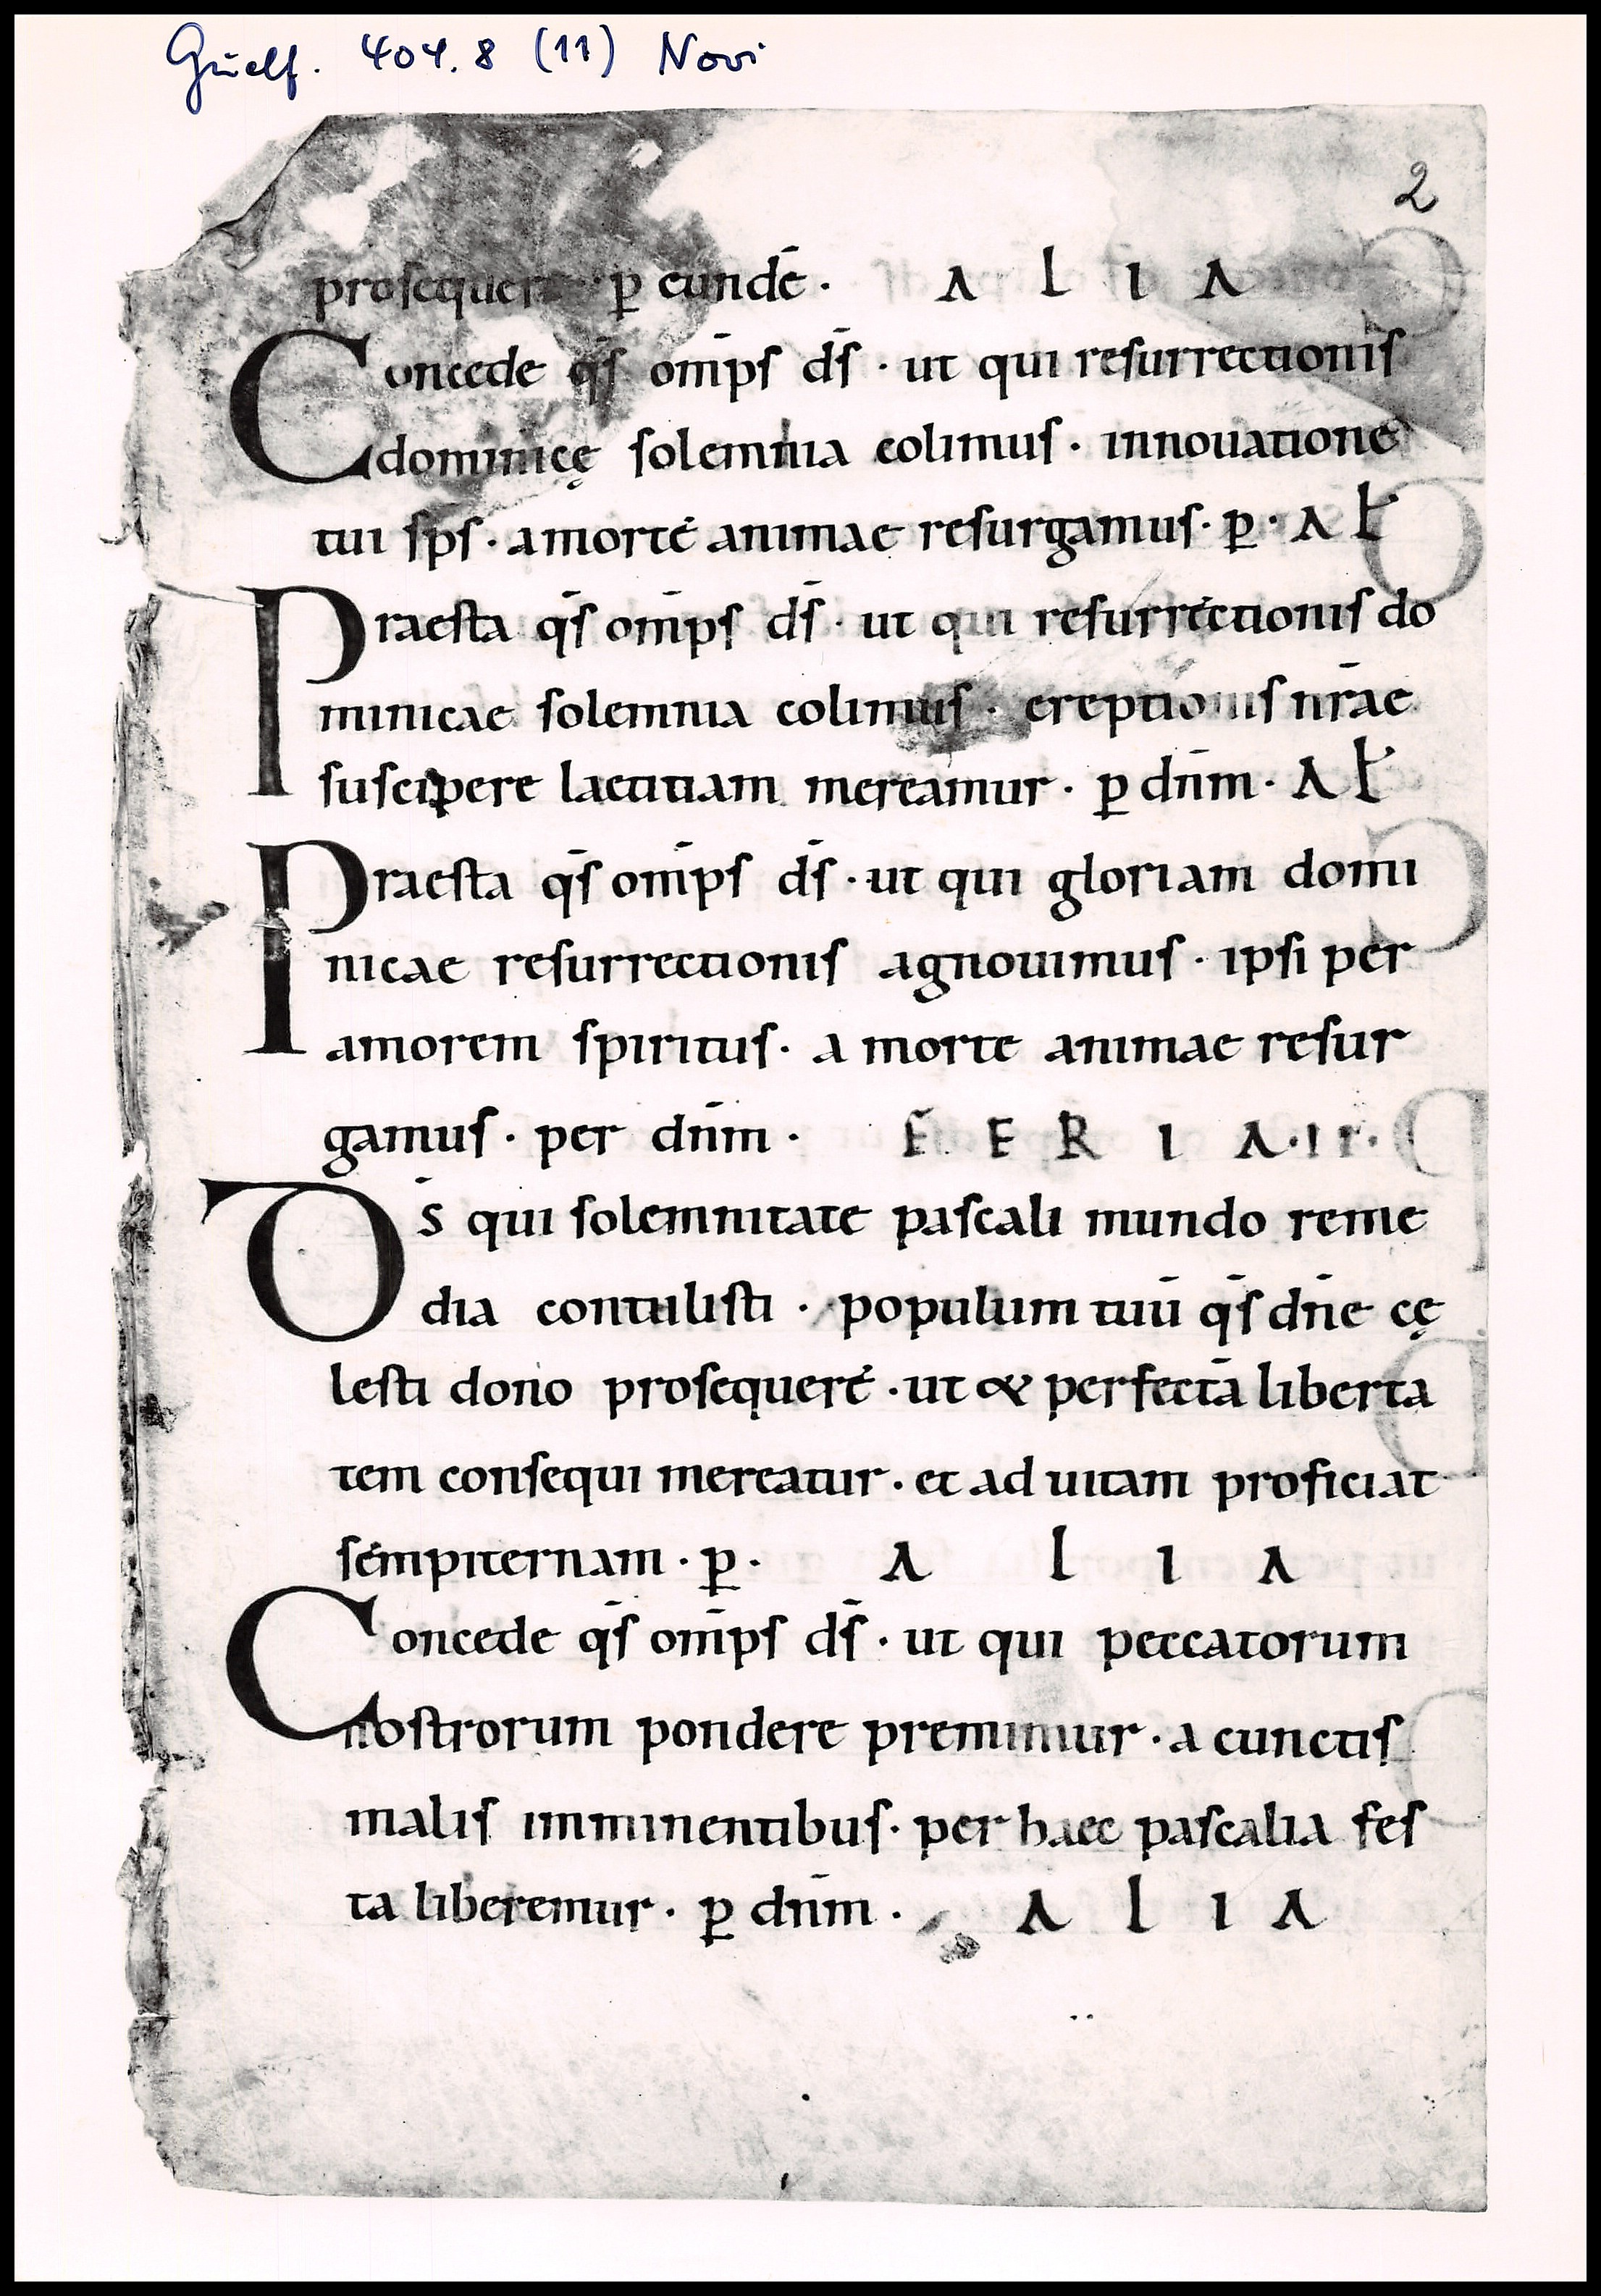 Guelf. 404.8 (11) Novi
2
prosequere · p̱ eundē · ALIA
Concede q̄s om̄ps d̄s · ut qui resurrectionis
dominicę solemnia colimus · innouatione
tui sp̄s · amorte animae resurgamus · p̱ · AL̵
Praesta q̄s om̄ps d̄s · ut qui resurrectionis do
minicae solemnia colimus · ereptionis nr̄ae
suscipere laetitiam mereamur · p̱ dn̄m · AL̵
Praesta q̄s om̄ps d̄s · ut qui gloriam domi
nicae resurrectionis agnouimus · ipsi per
amorem spiritus · a morte animae resur
gamus · per dn̄m · FERIA · II ·
D̄s qui solemnitate pascali mundo reme
dia contulisti · populum tuū q̄s dn̄e cę
lesti dono prosequere · ut & perfectā liberta
tem consequi mereatur · et ad uitam proficiat
sempiternam · p̱ · ALIA
Concede q̄s om̄ps d̄s · ut qui peccatorum
nostrorum pondere premimur · a cunctis
malis imminentibus · per haec pascalia fes
ta liberemur · p̱ dn̄m · ALIA